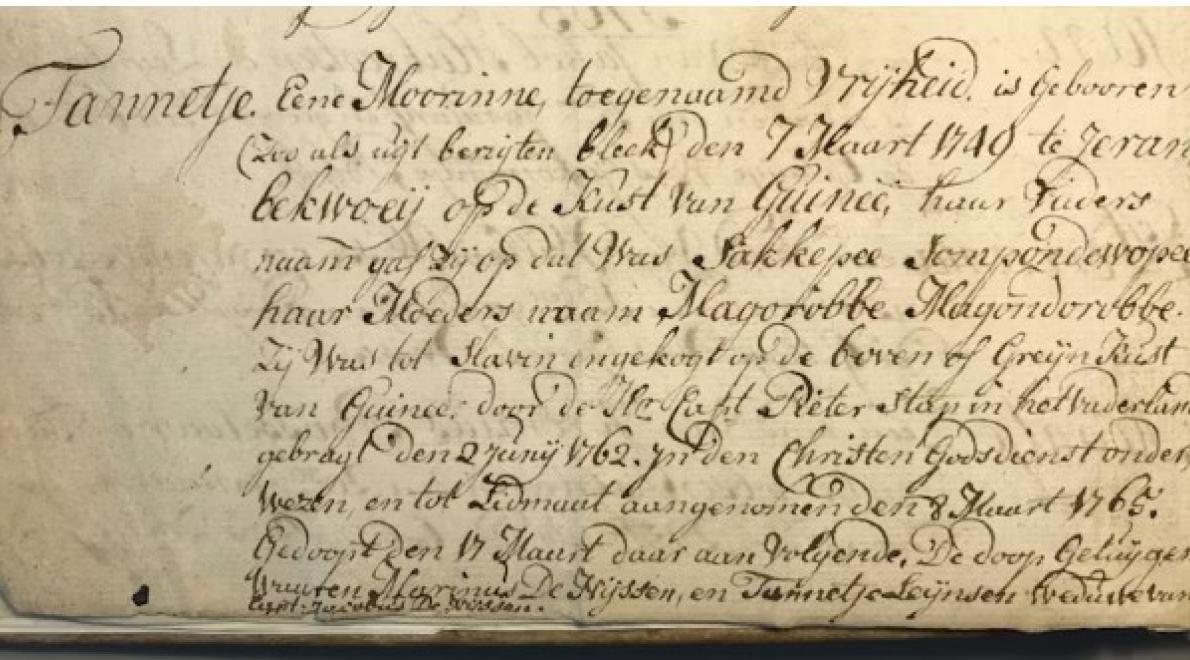 Tannetje. Eene Moorinne, toegenaamd Vrijheid. is Gebooren
(Zoo als uijt berigten bleek) den 7 Maart 1749 te Jeran
bekwoeij op de Kust van Guinee, haar Vaders
naam gaf Zij op dat Was Sakkepee Sompondewopee
haar Moeders naam Magorobbe Magondorobbe.
Zij Was tot Slavin ingekogt op de boven of Greijn Kust
van Guinee, door de Hr Capt Pieter Stap in het vaderlan
gebragt den 2 Junij 1762. In den Christen Godsdienst onder
wezen, en tot Lidmaat aangenomen den 8 Maart 1765.
Gedoopt den 17 Maart daar aan Volgende. De doop Getuijgen
Waaren Marinus De Wijssen, en Tannetje Leijnsen Weduwe van
Capt: Jacobus De Wijssen.